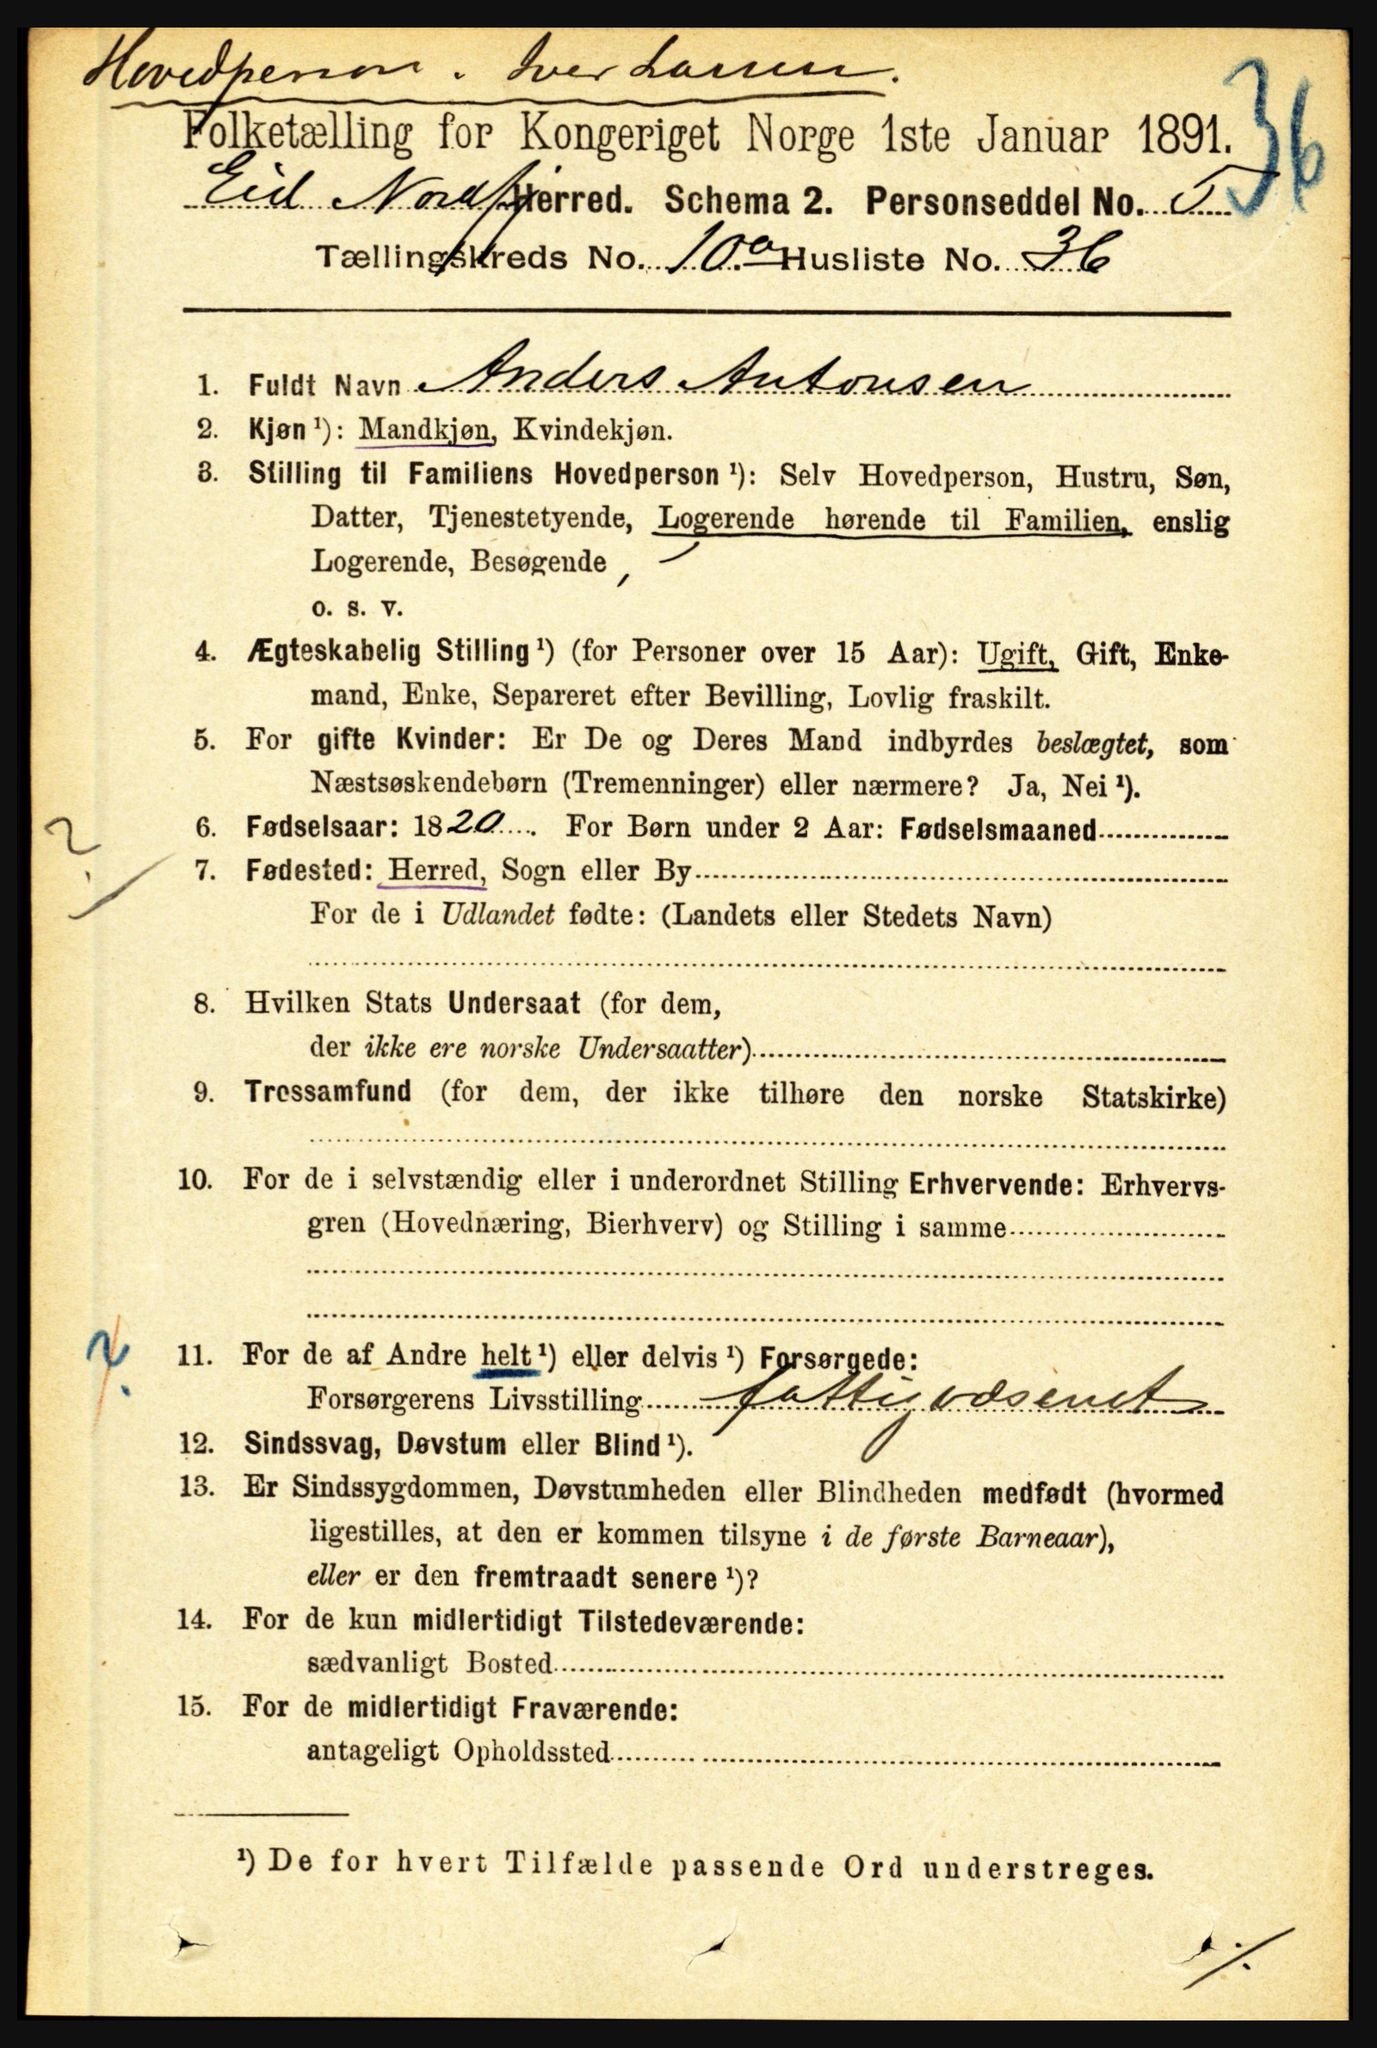 Hovedperson. Iver Larsen.
36
Folketælling for Kongeriget Norge 1ste Januar 1891.
Eid Nordfj Herred. Schema 2. Personseddel No. 5
Tællingskreds No. 10.a Husliste No. 36
1. Fuldt Navn Anders Antonsen
2. Kjøn ¹): Mandkjøn, Kvindekjøn.
3. Stilling til Familiens Hovedperson ¹): Selv Hovedperson, Hustru, Søn,
Datter, Tjenestetyende, Logerende hørende til Familien, enslig
Logerende, Besøgende
o. s. v.
4. Ægteskabelig Stilling ¹) (for Personer over 15 Aar): Ugift, Gift, Enke-
mand, Enke, Separeret efter Bevilling, Lovlig fraskilt.
5. For gifte Kvinder: Er De og Deres Mand indbyrdes beslægtet, som
Næstsøskendebørn (Tremenninger) eller nærmere? Ja, Nei ¹).
?
6. Fødselsaar: 1820. For Børn under 2 Aar: Fødselsmaaned
7. Fødested: Herred, Sogn eller By
For de i Udlandet fødte: (Landets eller Stedets Navn)
8. Hvilken Stats Undersaat (for dem,
der ikke ere norske Undersaatter)
9. Trossamfund (for dem, der ikke tilhøre den norske Statskirke)
10. For de i selvstændig eller i underordnet Stilling Erhvervende: Erhvervs-
gren (Hovednæring, Bierhverv) og Stilling i samme
11. For de af Andre helt ¹) eller delvis ¹) Forsørgede:
Forsørgerens Livsstilling fattigvæsenet
12. Sindssvag, Døvstum eller Blind ¹).
13. Er Sindssygdommen, Døvstumheden eller Blindheden medfødt (hvormed
ligestilles, at den er kommen tilsyne i de første Barneaar),
eller er den fremtraadt senere ¹)?
14. For de kun midlertidigt Tilstedeværende:
sædvanligt Bosted
15. For de midlertidigt Fraværende:
antageligt Opholdssted
¹) De for hvert Tilfælde passende Ord understreges.